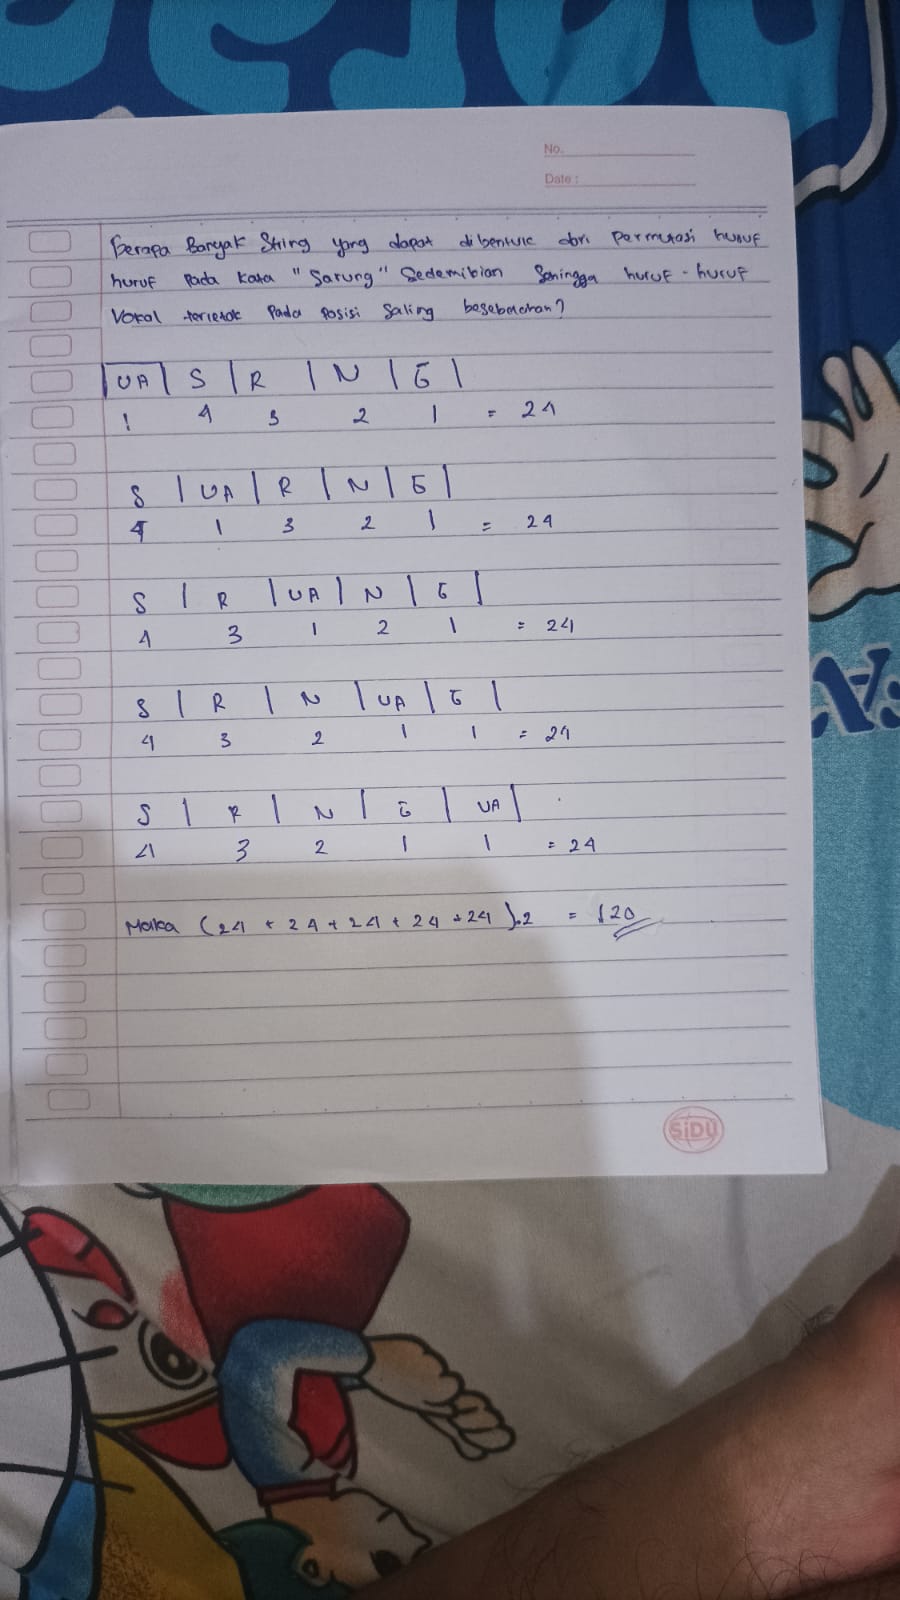 No.
Date :
Berapa Banyak String yang dapat dibentuk dari Permutasi huruf
huruf Pada Kata "Sarung" Sedemikian Sehingga huruf - huruf
Vokal terletak Pada Posisi Saling besebalahan?
UA | S | R | N | G |
1 4 3 2 1 = 24
S | UA | R | N | G |
4 1 3 2 1 = 24
S | R | UA | N | G |
4 3 1 2 1 = 24
S | R | N | UA | G |
4 3 2 1 1 = 24
S | R | N | G | UA |
4 3 2 1 1 = 24
Maka (24 + 24 + 24 + 24 + 24).2 = 120
SiDU